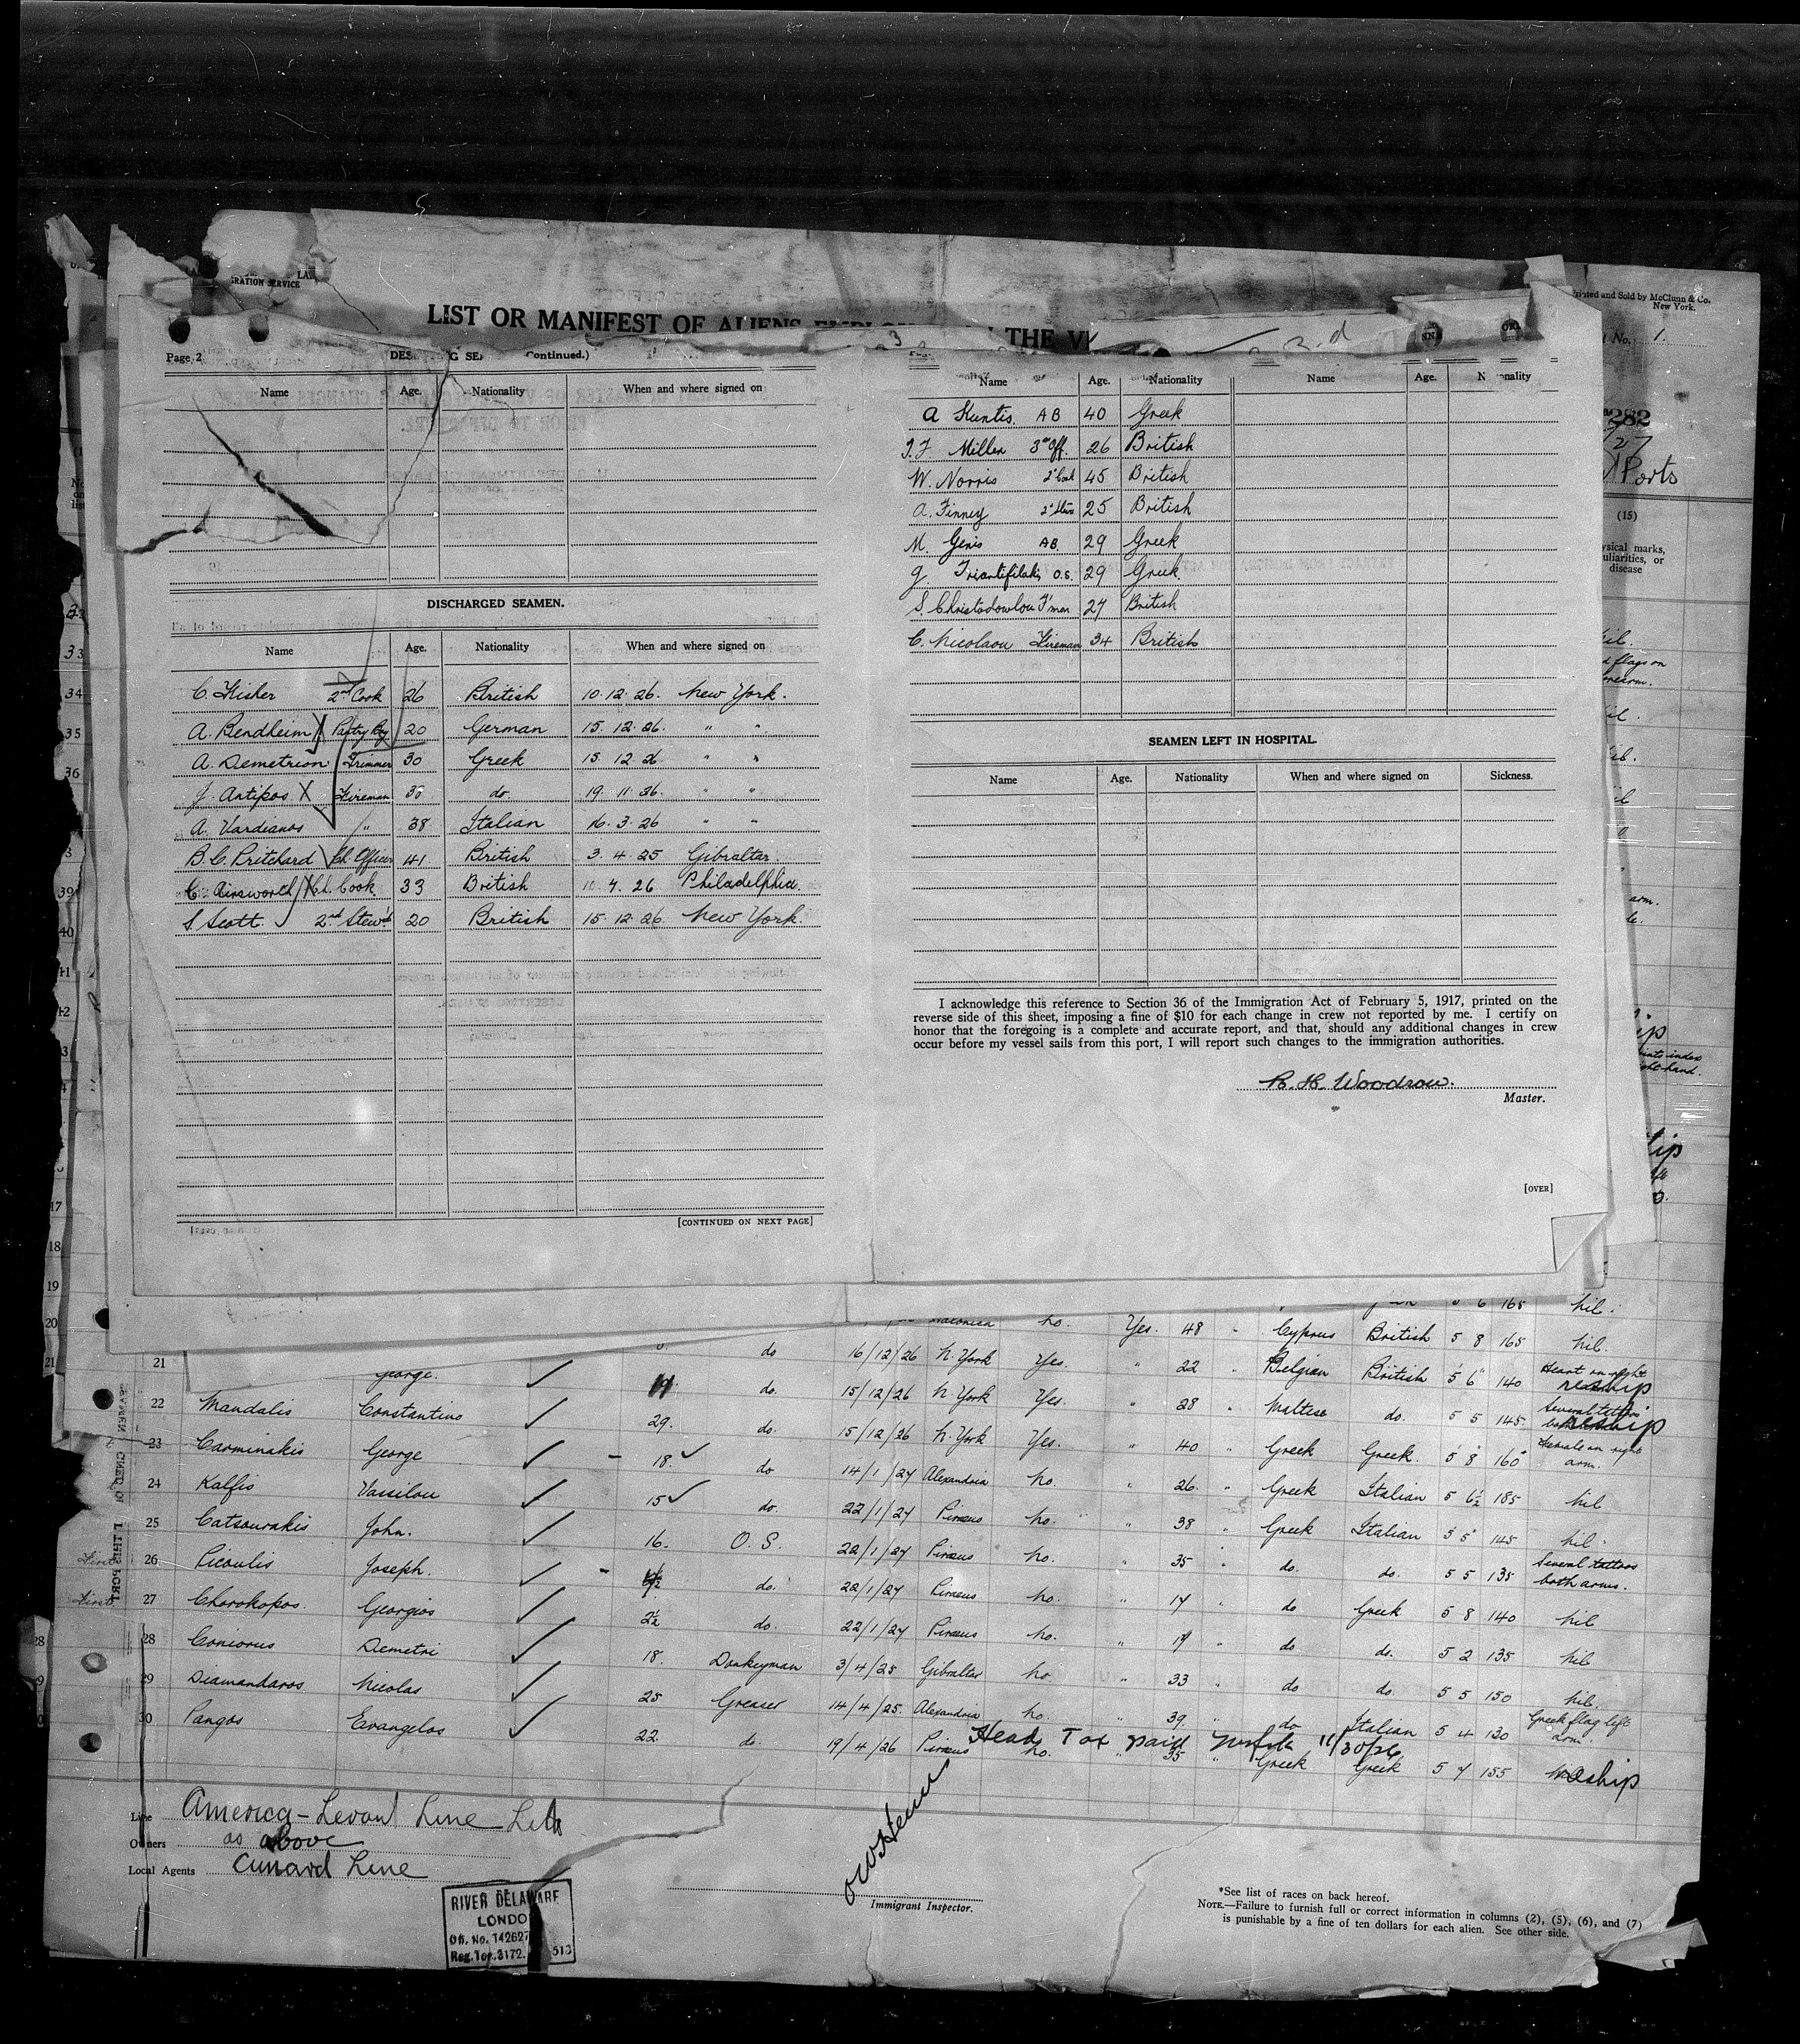 GRATION SERVICE
Printed and Sold by McClunn & Co.
New York.
LIST OR MANIFEST OF ALIENS
THE
No. 1.
Page 2
Continued.)
Name Age. Nationality When and where signed on
DISCHARGED SEAMEN.
Name Age. Nationality When and where signed on
C. Fisher 2nd Cook 26 British 10.12.26. New York.
A. Bendheim X Pantry Boy 20 German 15.12.26. " "
A. Demetrion Trimmer 30 Greek 15.12.26 " "
J. Antipas X Fireman 30 do. 19.11.26. " "
A. Vardianos " 38 Italian 16.3.26 " "
B.C. Pritchard Ch. Officer 41 British 3.4.25 Gibraltar.
C. Ainsworth Ch. Cook 33 British 10.4.26 Philadelphia.
S. Scott. 2nd Stewd. 20 British 15.12.26. New York.
[CONTINUED ON NEXT PAGE]
Name Age. Nationality Name Age.
A Kuntis. AB 40 Greek
J.F. Miller 3rd Off. 26 British
W. Norris 2d Cook 45 British
A. Finney 25 British
M. Genis AB. 29 Greek
G. Triantifilakis O.S. 29 Greek.
S. Christodowlou F'man 27 British
C. Nicolaou Fireman 34 British
SEAMEN LEFT IN HOSPITAL.
Name Age. Nationality When and where signed on Sickness.
I acknowledge this reference to Section 36 of the Immigration Act of February 5, 1917, printed on the
reverse side of this sheet, imposing a fine of $10 for each change in crew not reported by me. I certify on
honor that the foregoing is a complete and accurate report, and that, should any additional changes in crew
occur before my vessel sails from this port, I will report such changes to the immigration authorities.
R. H. Woodrow.
Master.
[OVER]
282
Ports
(15)
ysical marks,
uliarities, or
disease
5 6 165 nil.
no. Yes. 48 " Cyprus British 5 8 165 nil.
21 George. ✓ do 16/12/26 N. York Yes. " 22 " Belgian British 5 6 140 Heart on right
22 Mandalis Constantino ✓ 19. do. 15/12/26 N. York Yes. " 28 " Maltese do. 5 5 145 Several tattoos
23 Carminakis George ✓ 29. do. 15/12/26 N. York Yes. " 40 " Greek Greek. 5 8 160 Female on right
arm.
24 Kalfis Vassilou ✓ 18. ✓ do 14/1/27 Alexandria no. " 26. " Greek Italian 5 6½ 185 nil
25 Catsourakis John. ✓ 15 ✓ do. 22/1/27 Piraeus no. " 38 " Greek Italian 5 5 145 nil
First 26 Picoulis Joseph. ✓ 16. O. S. 22/1/27 Piraeus no. " 35 " do. do. 5 5 135 Several tattoos
both arms.
First 27 Chorokopos. Georgios ✓ do. 22/1/27 Piraeus no. " 17 " do Greek 5 8 140 nil
28 Coniorus Demetri ✓ do. 22/1/27 Piraeus no. " 19 " do do. 5 2 135 nil
29 Diamandaros Nicolas ✓ 18. Donkeyman 3/4/25 Gibraltar no " 33 " do do. 5 5 150 nil.
30 Pangos Evangelos ✓ 25 Greaser 14/4/25. Alexandria no. " 39. " do Italian 5 4 130 Greek flag left
arm.
22. do. 19/4/26 Piraeus no. " 35 " Greek Greek 5 7 155
Head Tax paid Norfolk 11/30/26
Line America-Levant Line Ltd
Owners as above
Local Agents Cunard Line
RIVER DELAWARE
LONDO
Off. No. 142627
Reg. Ton. 3172. 513
Immigrant Inspector.
*See list of races on back hereof.
NOTE.—Failure to furnish full or correct information in columns (2), (5), (6), and (7)
is punishable by a fine of ten dollars for each alien. See other side.